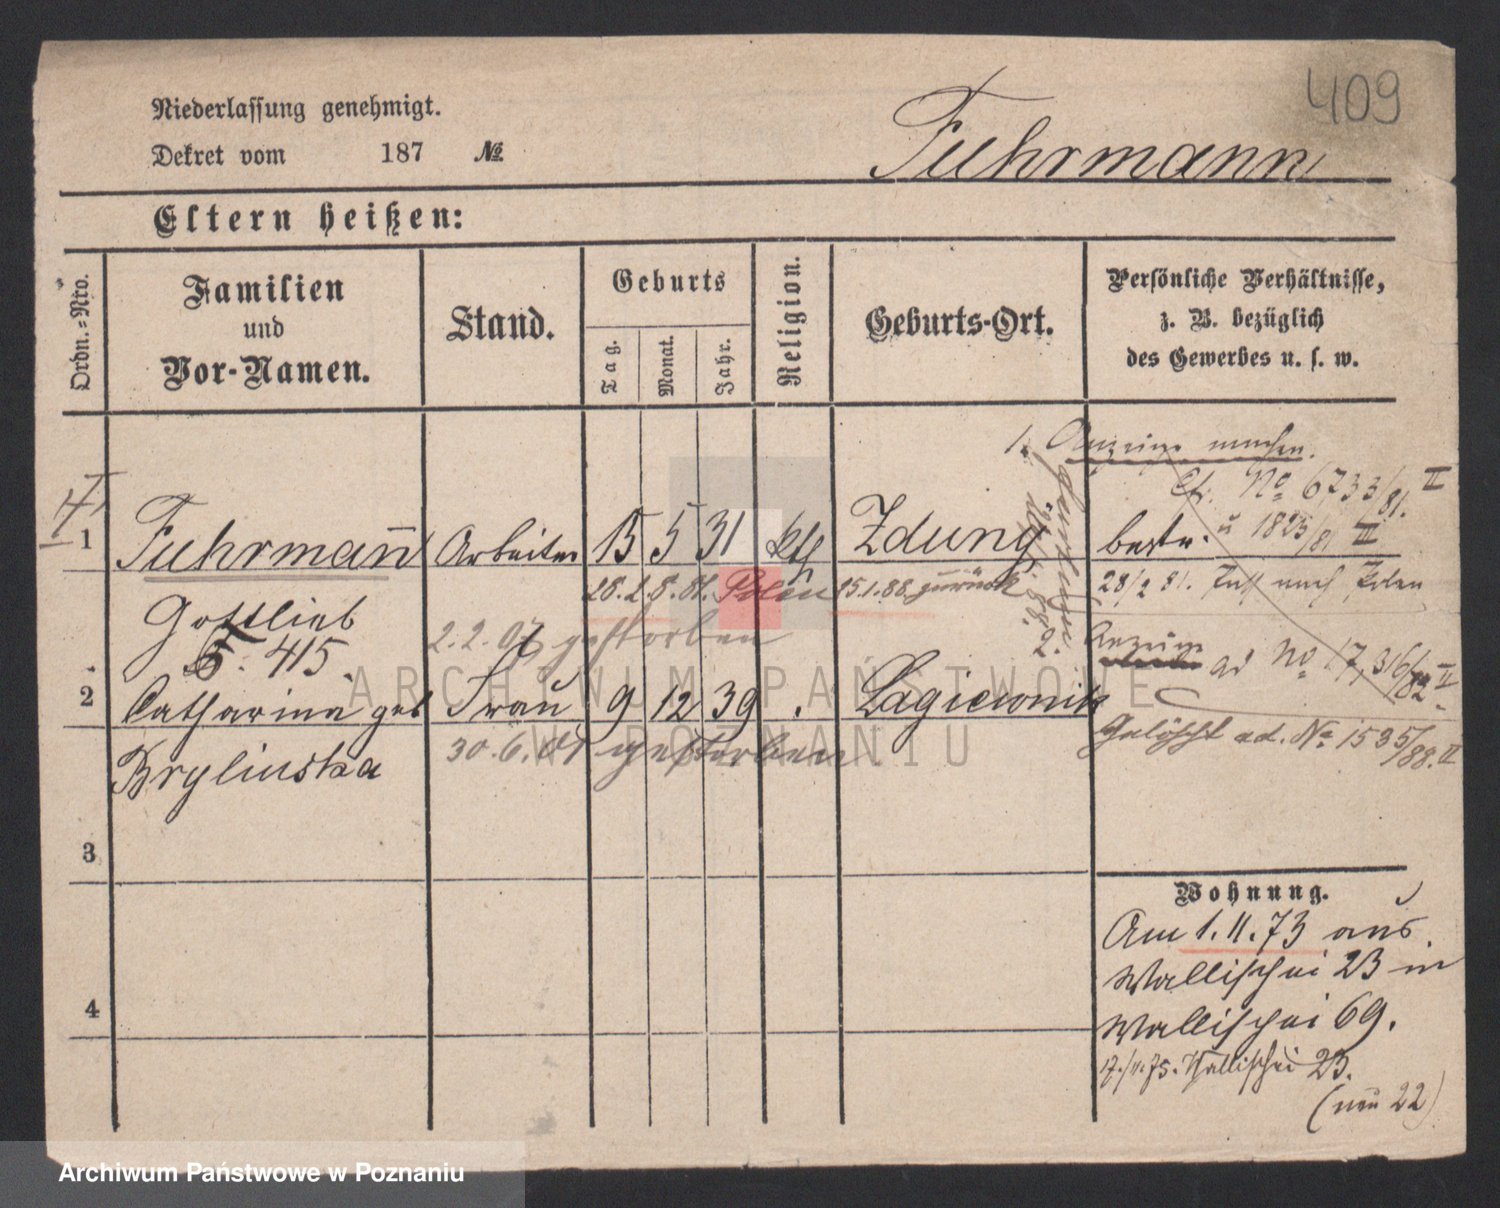 409
Niederlassung genehmigt.
Dekret vom 187 №
Fuhrmann
Eltern heißen:
Ordn.-Nro.
Familien
und
Vor-Namen.
Stand.
Geburts
Tag.
Monat.
Jahr.
Religion.
Geburts-Ort.
Persönliche Verhältnisse,
z. B. bezüglich
des Gewerbes u. s. w.
1. Anzeige machen.
Cfr. No 6733/81. II
u 1825/81 III
1 Fuhrmann Arbeiter 15 5 31 kth Zduny bestr.
28/2 81. Paß nach Polen
Gottlieb
28.2.8.81. Polen 15.1.88. zurück
2.2.07 gestorben
F. 415.
Anzeige ad No 17,316/82 II
2 Catharina geb Frau 9 12 39 . Lagiewnik
Brylinska
30.6.01 gestorben
Gelöscht ad. No 1535/88. II
3
4
Wohnung.
Am 1.11.73 aus
Wallischei 23 in
Wallischei 69.
17./11.75. Wallischei 23.
(neu 22)
ARCHIWUM PAŃSTWOWE
W POZNANIU
Archiwum Państwowe w Poznaniu